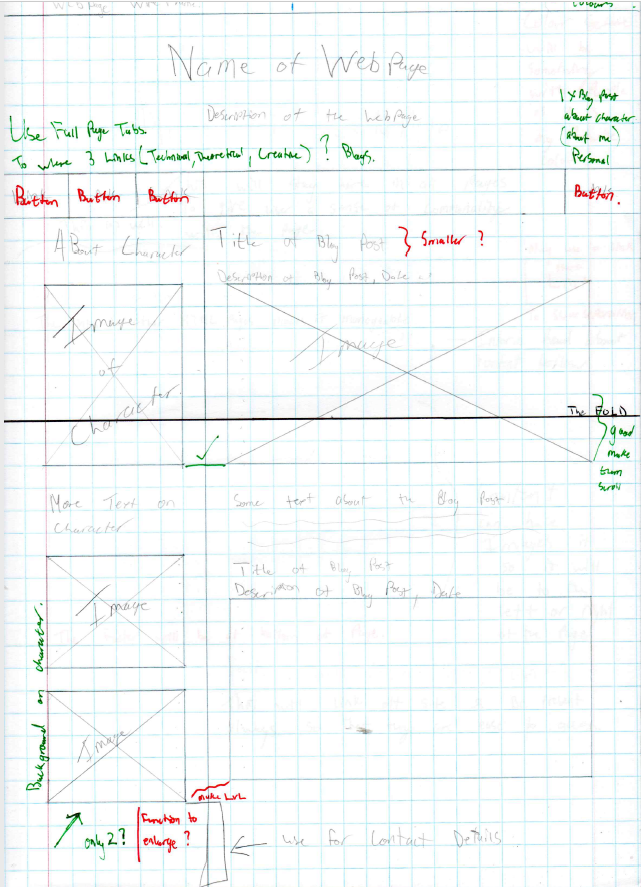 Colours
Name of Web Page
Description of the Web Page
1 x Blog Post
about character
(about me)
Personal
Use Full Page Tabs.
To where 3 Links (Technical, Theoretical, Creative) ? Blogs.
Button Button Button Button.
About Character
Title of Blog Post } Smaller ?
Description of Blog Post, Date
Image
of
Character.
Image
The FOLD
good
make
them
scroll
More Text on
Character
Some text about the Blog Post.
Title of Blog Post
Description of Blog Post, Date
Image
Image
Background on character.
make LvL
only 2?
Function to
enlarge ?
Use for Contact Details